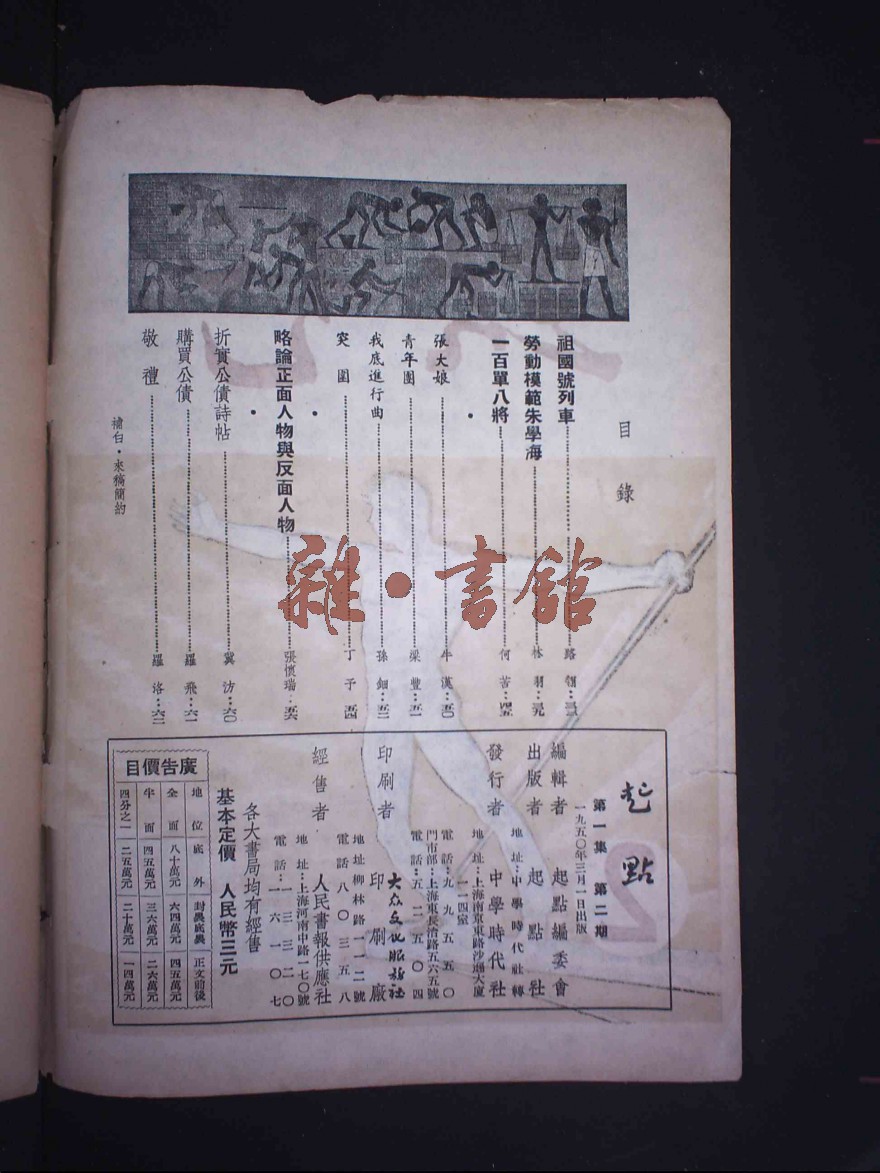 目錄
祖國號列車……路翎…三三
勞動模範朱學海……林羽…三九
一百單八將……何苦…四五
張大娘……牛漢…五〇
青年團……梁豐…五一
我底進行曲……孫鈿…五二
突圍……丁子…五四
略論正面人物與反面人物……張懷瑞…五六
折實公債詩帖……冀汸…六〇
購買公債……羅飛…六一
敬禮……羅洛…六二
補白·來稿簡約
雜·書館
起點
第一集 第二期
一九五〇年三月一日出版
編輯者 起點編委會
出版者 起點社
地址:中學時代社轉
發行者 中學時代社
地址:上海南京東路沙遜大廈
一一四室
電話:九九五五〇
門市部:上海東長治路五六五號
電話:五二五〇四
印刷者 大众文化服務社
印刷廠
地址柳林路一一二號
電話八〇三五八
經售者 人民書報供應社
地址:上海河南中路一七〇號
電話:一三三二〇
一六一〇七
各大書局均有經售
基本定價 人民幣三元
廣告價目
地位 底外 封裏底裏 正文前後
全面 八十萬元 六四萬元 四五萬元
半面 四五萬元 三六萬元 二六萬元
四分之一 二五萬元 二十萬元 一四萬元